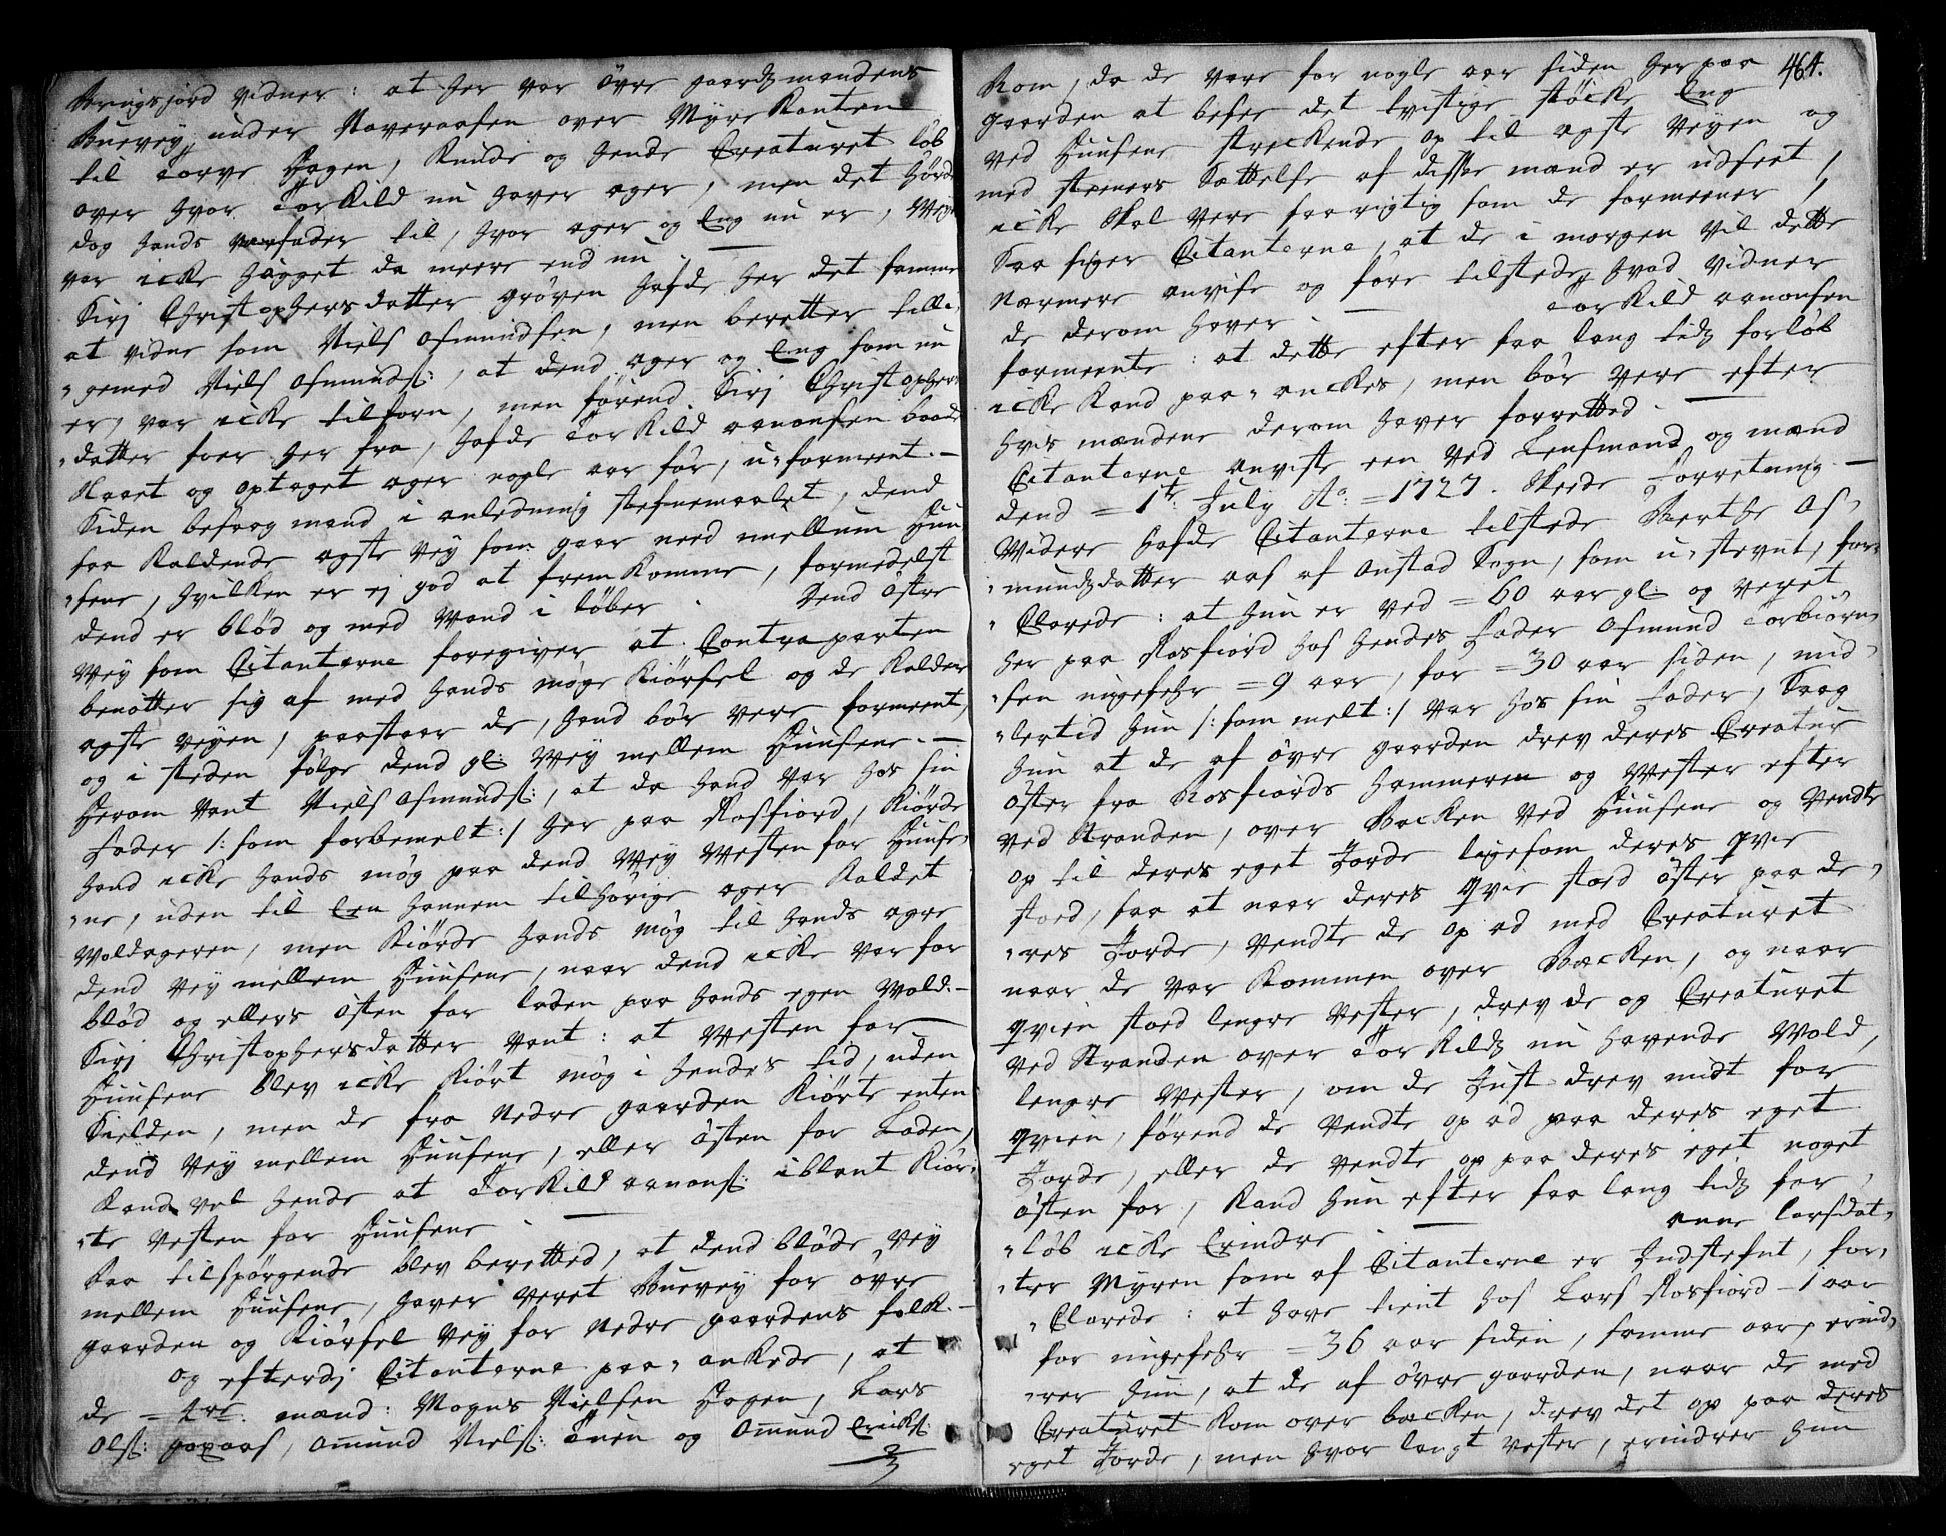 Bringsjord vidner: at her var øvre gaardz mandens
Buevey under Naveraasen over Myre Kanten
til Torve Hagen, Kunde og hende Creaturet løb
over hvor Torkild nu haver ager, men det hørde
dog hands farfader til, hvor ager og Eng nu er,
var icke hugget da meere end nu.
Siri Christophersdatter grøven hafde her det samme
at vidne som Niels Asmundsen, men beretter till
gemed Niels Asmunds:, at dend ager og Eng som nu
er, var icke tilforn, men førend Siri Christophers
datter foer her fra, hafde Torkild aanonsen baade
Slaaet og optaget ager nogle aar før, u-forment.
Siden besaag mand i anledning stefnemaalet, dend
saa Kaldende ager Vey som gaar need mellum Huu
sene, hvilken er ej god at frem Komme, formedelst
dend er blød og med Vand i løber. Dend østre
Vey som Citanterne foregiver at Contraparten
benøtter sig af med hands møge Kiørsel og de Kalder
ageste veyen, paastaar de, hand bør vere forment,
og i steden følge dend gl: Vey mellem Huusene.
Herom Vant Niels Asmunds:, at da hand var hos sin
Fader /:som forbemelt:/ her paa Rosfiord, Kiørde
hand icke hands møg paa dend Vey Vesten for Huuse
ne, uden til Een hannem tilhørige ager Kaldet
Voldageren, men Kiørde hands møg til hands agre
dend Vey mellem Huusene, naar dend icke var for
blød og ellers østen for laden paa hands egen Vold.
Siri Christophersdatter Vant: at Vesten for
Huusene blev icke Kiørt møg i hendes tid, uden
Sielden, men de fra Nedre gaarden Kiørte enten
dend Vey mellem Huusene, eller østen for Laden,
Kand vel hende at Torkild aanons: iblant Kiør
te Vesten for Huusene.
Paa tilspørgende blev beretted, at dend bløde Vey
mellem Huusene, haver veret Buevey for øvre
gaarden og Kiørsel Vey for Nedre gaardens folk.
og efterdj Citanterne paa-ankede, at
de = 4re mænd: Mogns Nielsen Hagen, Lars
Ols: , Amund Niels: Tuen og Amund Ericks:
464.
Kom, da de vare for nogle aar siden her paa
gaarden at besee det tvistige støcke Eng
ved Huusene streckende op til ageste Veyen og
med steeners Sættelse af disse mænd er udseet,
icke skal vere saa rigtig som de formeener,
Saa siger Citanterne, at de i morgen vil dette
Nærmere anvise og føre tilstede hvad vidner
de derom haver. Torkild aanonsen
formeente: at dette efter saa lang tidz forløb
icke Kand paa-anckes, men bør vere efter
hvis mændene derom haver forretted.
Citanterne anviste een ved Lensmand og mænd
dend = 1te July Ao: = 1727. skeede Forretning.
Videre hafde Citanterne tilstede Berthe As
mundzdatter aas af Austad Sogn, som u-stevnt, for
Clarede: at hun er ved = 60 aar gl: og veret
her paa Rosfiord hos hendes Fader Asmund Torbiørn
sen ungefehr = 9 aar, for = 30 aar siden, mid
lertid hun /:som melt:/ var hos sin Fader, Saag
hun at de af øvre gaarden drev deres Creatur
øster fra Rosfiords hammeren og Vester efter
ved Stranden, over Backen ved Huusene og Vendte
op til deres eget Jorde ligesom deres qvie
stoed, saa at naar deres qvie stoed øster paa de
res Jorde, Vendte de op ad med Creaturet
naar de var Kommen over Backen, og naar
qvien stoed lengre Vester, drev de og Creaturet
ved Stranden over Torkildz nu havende Vold,
lengre Vester, om de Just drev midt for
qvien, førend de vendte op ad paa deres eget
Jorde, eller de vendte op paa deres eget noget
østen for, Kand hun efter saa lang tidz for
løb icke Erindre. Anne Larsdat
ter Myren som af Citanterne er Indstefnt, for
Clarede: at have tient hos Lars Rosfiord - 1 aar
for ungefehr = 36 aar siden, samme aar, erind
rer hun, at de af øvre gaarden, naar de med
Creaturet Kom over backen, drev det op paa deres
eget Jorde, men hvor langt vester, erindrer hun